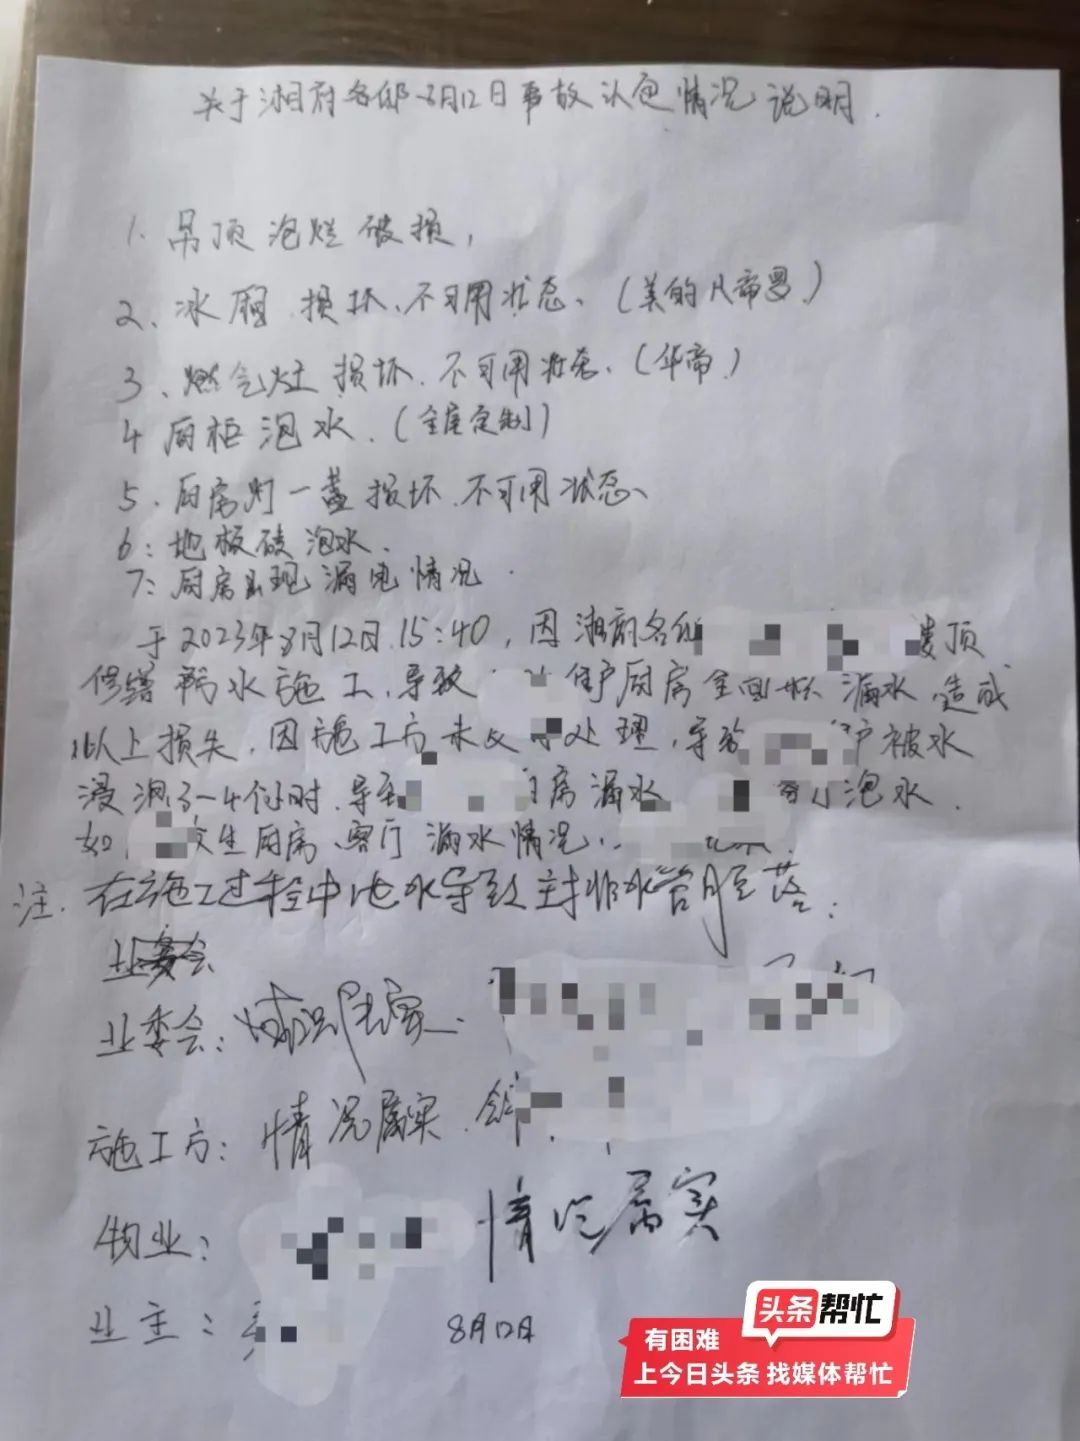 关于湘府名邸8月12日事故认定情况说明.
1. 吊顶泡烂破损,
2、冰厢损坏、不可用状态、(美的凡帝罗)
3、燃气灶损坏、不可用状态、(华帝)
4 厨柜泡水.(全屋定制)
5、厨房灯一盏损坏、不可用状态、
6:地板砖泡水、
7:厨房出现漏电情况.
于2023年8月12日15:40,因湘府名邸 楼顶
修缮 防水施工,导致 住户厨房全面 漏水,造成
以上损失,因施工方未及 处理,导致 户被水
浸泡3-4个小时,导致 房漏水 泡水.
如 发生厨房、客厅漏水情况,
注.在施工过程中 水导致主排水管脱落:
业委会
业委会:情况属实.
施工方:情况属实.
物业: 情况属实
业主: 8月12日
头条帮忙
有困难
上今日头条 找媒体帮忙